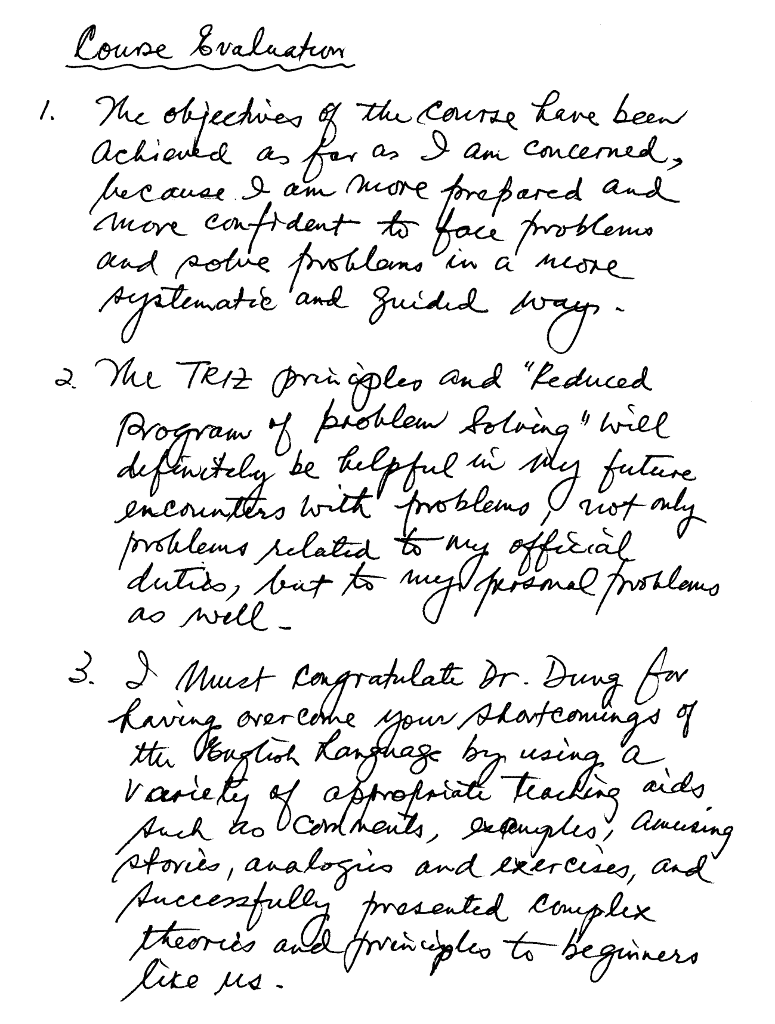 Course Evaluation
1. The objectives of the course have been
achieved as far as I am concerned,
because I am more prepared and
more confident to face problems
and solve problems in a more
systematic and guided ways.
2. The TRIZ principles and "Reduced
Program of problem Solving" will
definitely be helpful in my future
encounters with problems, not only
problems related to my official
duties, but to my personal problems
as well.
3. I Must Congratulate Dr. Dung for
having overcome your shortcomings of
the English Language by using a
variety of appropriate teaching aids
such as comments, examples, amusing
stories, analogies and exercises, and
successfully presented complex
theories and principles to beginners
like us.